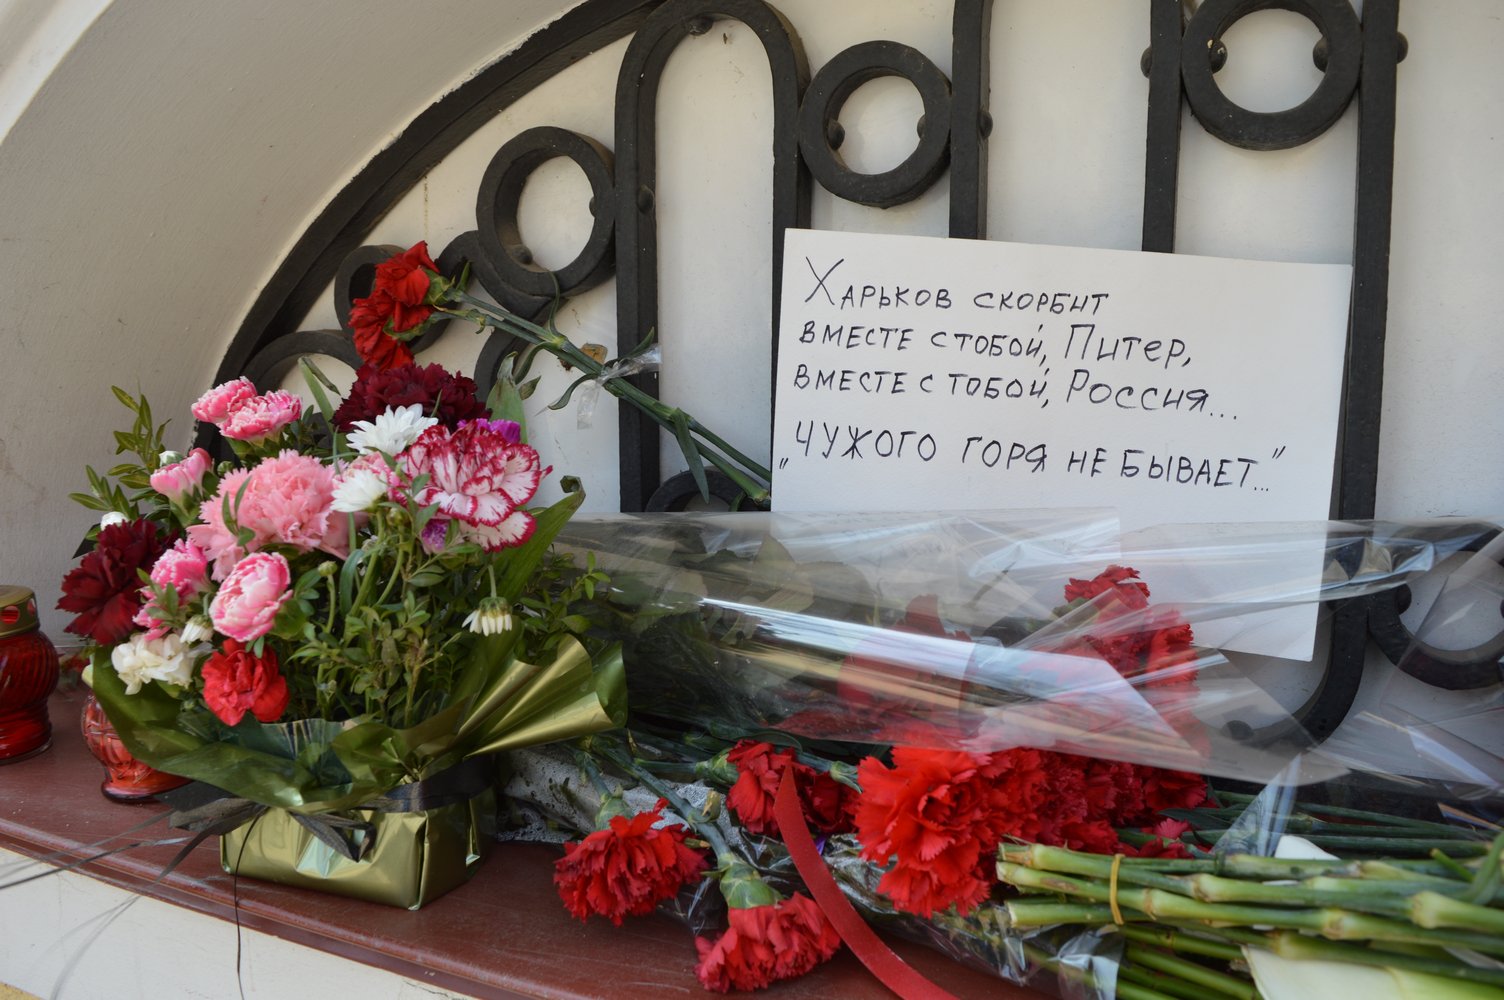 Харьков скорбит
вместе с тобой, Питер,
вместе с тобой, Россия...
„Чужого горя не бывает..."